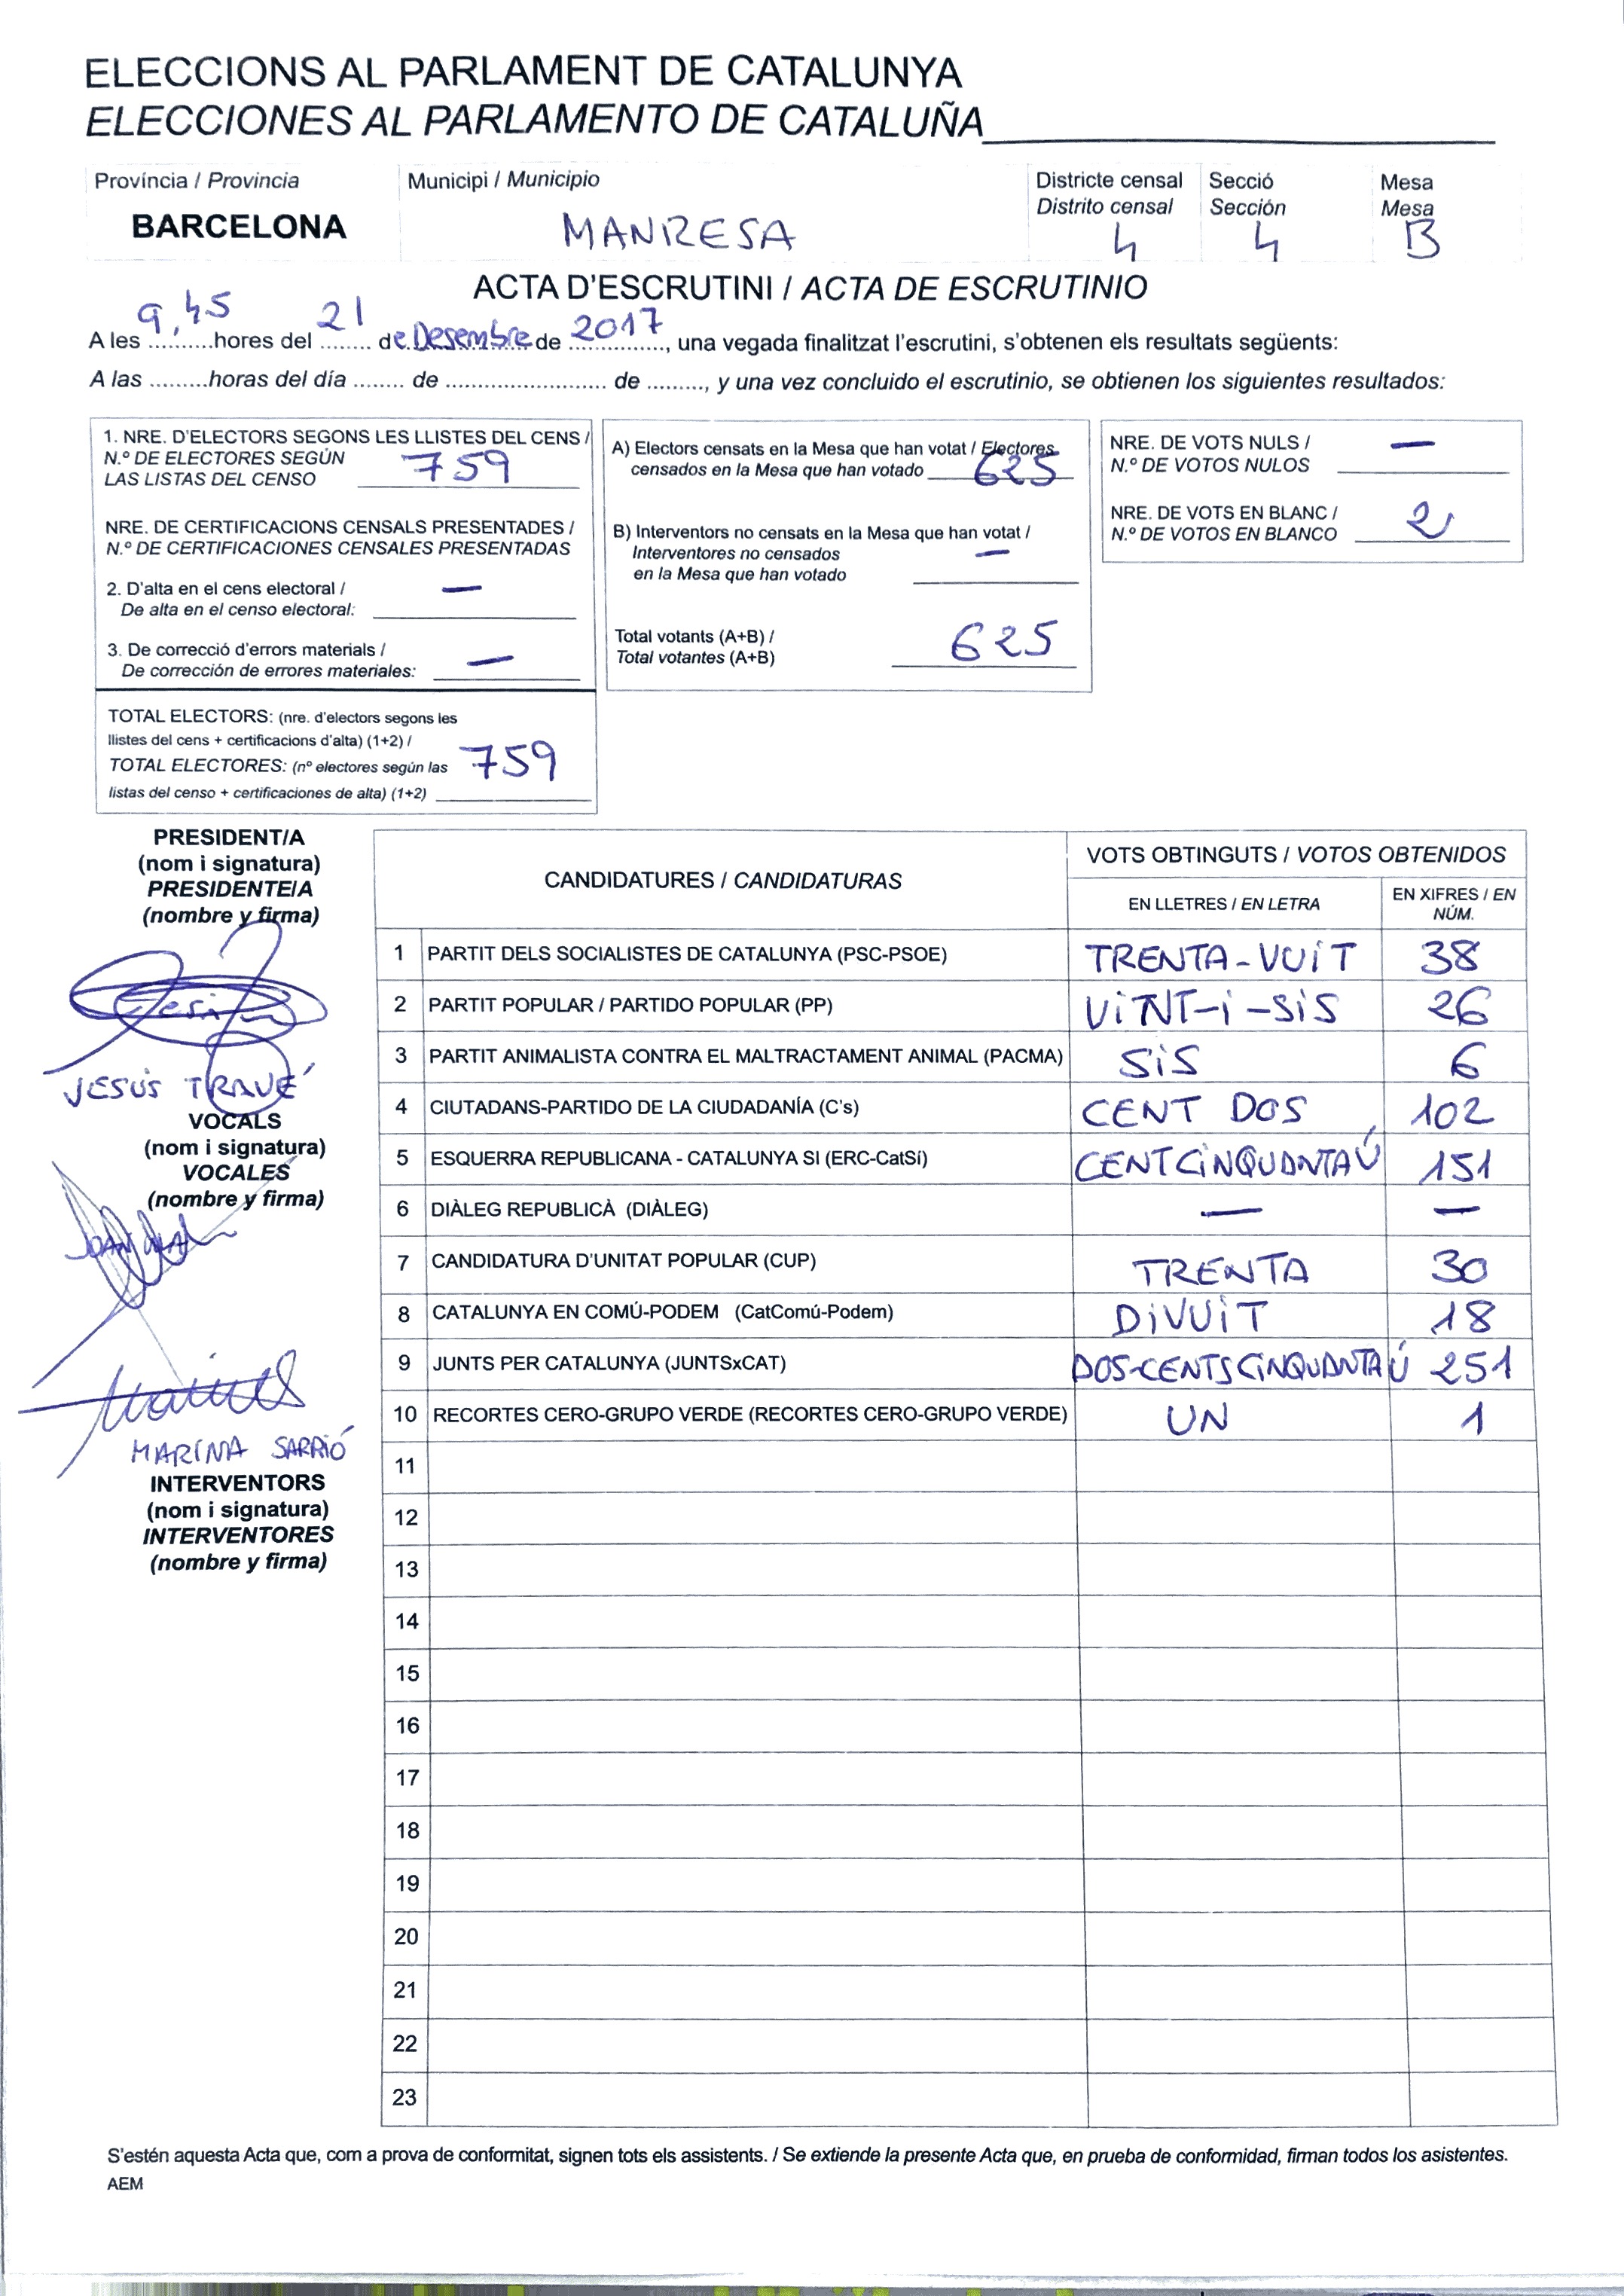 ELECCIONS AL PARLAMENT DE CATALUNYA
ELECCIONES AL PARLAMENTO DE CATALUÑA
Província / Provincia
BARCELONA
Municipi / Municipio
MANRESA
Districte censal
Distrito censal
4
Secció
Sección
4
Mesa
Mesa
B
ACTA D'ESCRUTINI / ACTA DE ESCRUTINIO
A les 9,45 hores del 21 de Desembre de 2017, una vegada finalitzat l'escrutini, s'obtenen els resultats següents:
A las .........horas del día ........ de ........................... de ........., y una vez concluido el escrutinio, se obtienen los siguientes resultados:
1. NRE. D'ELECTORS SEGONS LES LLISTES DEL CENS /
N.º DE ELECTORES SEGÚN
LAS LISTAS DEL CENSO 759
NRE. DE CERTIFICACIONS CENSALS PRESENTADES /
N.º DE CERTIFICACIONES CENSALES PRESENTADAS
2. D'alta en el cens electoral /
De alta en el censo electoral: —
3. De correcció d'errors materials /
De corrección de errores materiales: —
TOTAL ELECTORS: (nre. d'electors segons les
llistes del cens + certificacions d'alta) (1+2) /
TOTAL ELECTORES: (nº electores según las 759
listas del censo + certificaciones de alta) (1+2)
A) Electors censats en la Mesa que han votat / Electores
censados en la Mesa que han votado 625
B) Interventors no censats en la Mesa que han votat /
Interventores no censados —
en la Mesa que han votado
Total votants (A+B) /
Total votantes (A+B) 625
NRE. DE VOTS NULS /
N.º DE VOTOS NULOS —
NRE. DE VOTS EN BLANC /
N.º DE VOTOS EN BLANCO 2
PRESIDENT/A
(nom i signatura)
PRESIDENTE/A
(nombre y firma)
JESÚS TRAVÉ
VOCALS
(nom i signatura)
VOCALES
(nombre y firma)
JOAN
MARINA SARRIÓ
INTERVENTORS
(nom i signatura)
INTERVENTORES
(nombre y firma)
CANDIDATURES / CANDIDATURAS
VOTS OBTINGUTS / VOTOS OBTENIDOS
EN LLETRES / EN LETRA
EN XIFRES / EN
NÚM.
1 PARTIT DELS SOCIALISTES DE CATALUNYA (PSC-PSOE) TRENTA-VUIT 38
2 PARTIT POPULAR / PARTIDO POPULAR (PP) ViNT-i-SiS 26
3 PARTIT ANIMALISTA CONTRA EL MALTRACTAMENT ANIMAL (PACMA) SiS 6
4 CIUTADANS-PARTIDO DE LA CIUDADANÍA (C's) CENT DOS 102
5 ESQUERRA REPUBLICANA - CATALUNYA SI (ERC-CatSí) CENTCiNQUANTAÚ 151
6 DIÀLEG REPUBLICÀ (DIÀLEG) — —
7 CANDIDATURA D'UNITAT POPULAR (CUP) TRENTA 30
8 CATALUNYA EN COMÚ-PODEM (CatComú-Podem) DiVUiT 18
9 JUNTS PER CATALUNYA (JUNTSxCAT) DOS-CENTSCiNQUANTAÚ 251
10 RECORTES CERO-GRUPO VERDE (RECORTES CERO-GRUPO VERDE) UN 1
11
12
13
14
15
16
17
18
19
20
21
22
23
S'estén aquesta Acta que, com a prova de conformitat, signen tots els assistents. / Se extiende la presente Acta que, en prueba de conformidad, firman todos los asistentes.
AEM